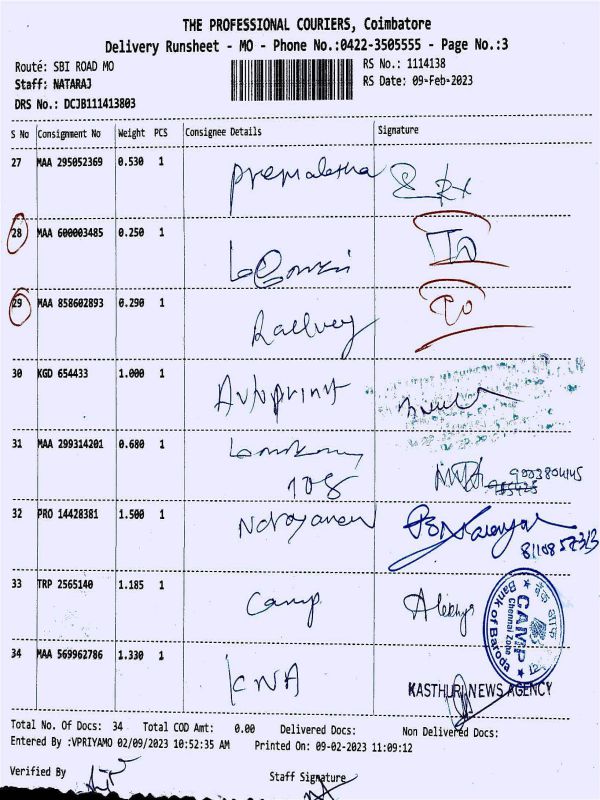 THE PROFESSIONAL COURIERS, Coimbatore
Delivery Runsheet - MO - Phone No.:0422-3505555 - Page No.:3
Route: SBI ROAD MO
RS No.: 1114138
Staff: NATARAJ
RS Date: 09-Feb-2023
DRS No.: DCJB111413803
S No Consignment No Weight PCS Consignee Details Signature
27 MAA 295052369 0.530 1 Premalatha
28 MAA 600003485 0.250 1
29 MAA 858602893 0.290 1 Railvey
30 KGD 654433 1.000 1 Autoprint
31 MAA 299314201 0.680 1
108
32 PRO 14428381 1.500 1 Narayanan
33 TRP 2565140 1.185 1 Camp
Bank of Baroda
CAMP
Chennai Zone
34 MAA 569962786 1.330 1 KNA
KASTHURI NEWS AGENCY
Total No. Of Docs: 34 Total COD Amt: 0.00 Delivered Docs: Non Delivered Docs:
Entered By :VPRIYAMO 02/09/2023 10:52:35 AM Printed On: 09-02-2023 11:09:12
Verified By
Staff Signature